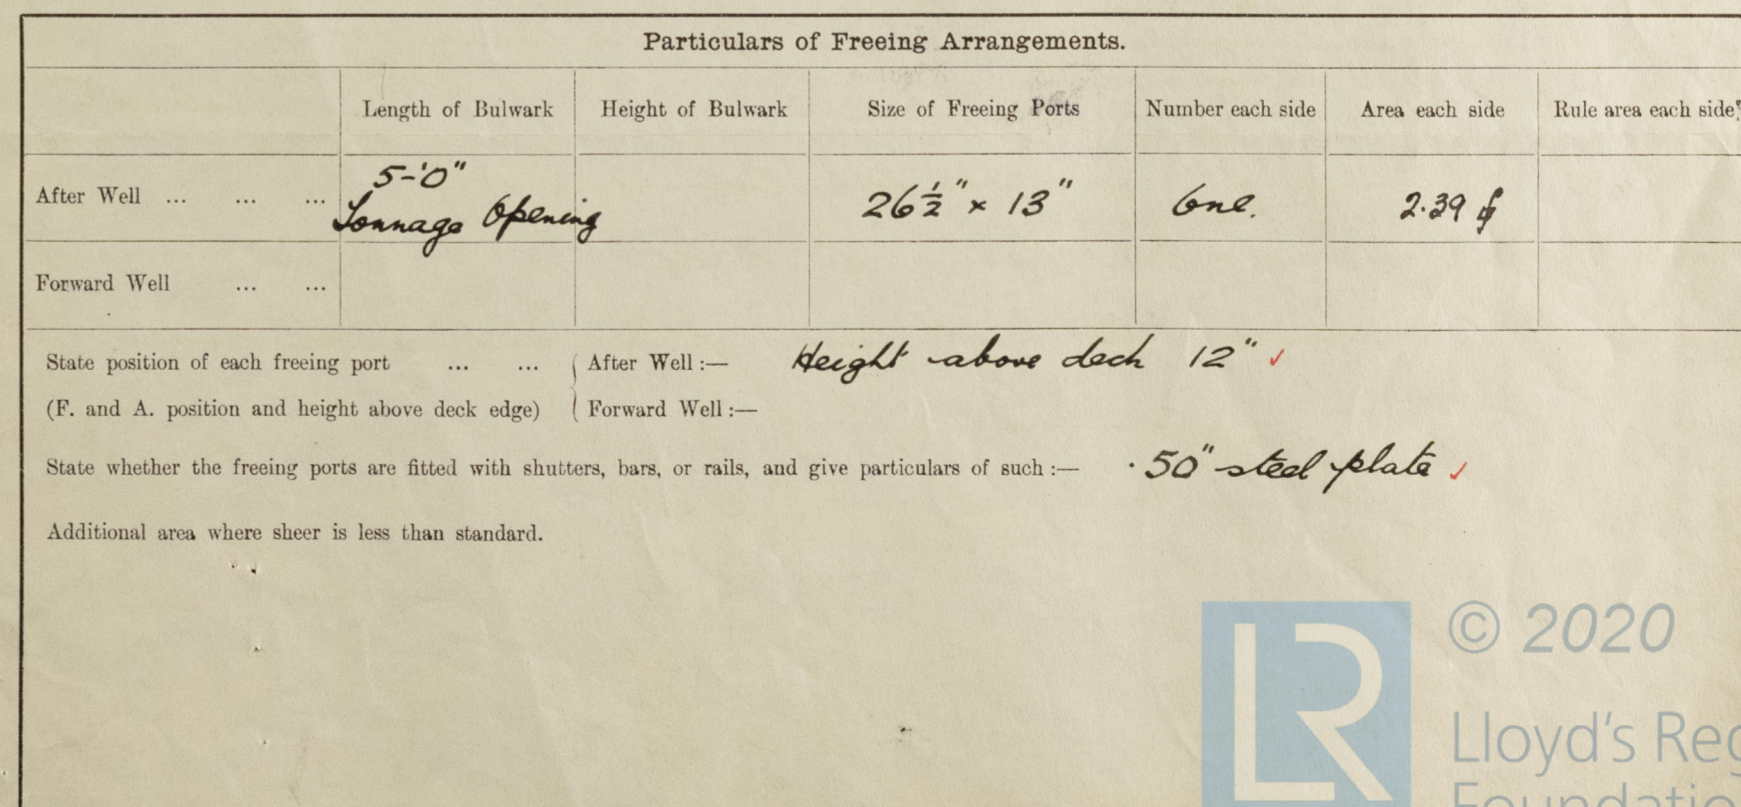 Particulars of Freeing Arrangements.
Length of Bulwark Height of Bulwark Size of Freeing Ports Number each side Area each side Rule area each side
After Well ... ... ... 5-'0" 26½" × 13" One. 2.39
Tonnage Opening
Forward Well ... ...
State position of each freeing port ... ... After Well :— Height above deck 12" ✓
(F. and A. position and height above deck edge) Forward Well :—
State whether the freeing ports are fitted with shutters, bars, or rails, and give particulars of such :— .50" steel plate ✓
Additional area where sheer is less than standard.
LR
© 2020
Lloyd's Reg
Foundatio